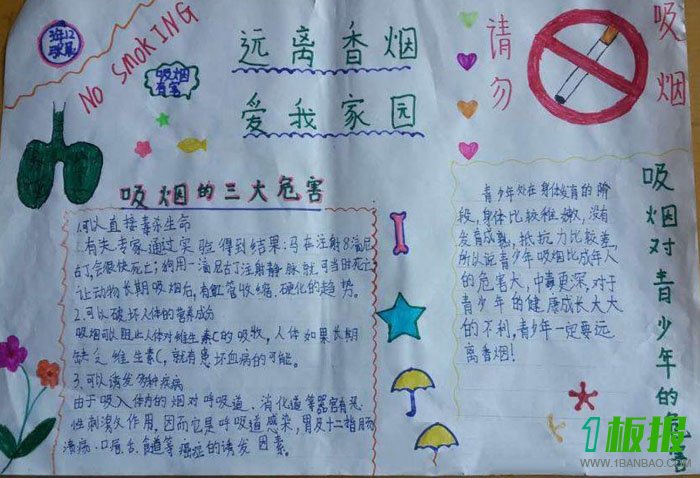 NO SMOKING
吸烟
有害
远离香烟
爱我家园
请勿
吸烟
吸烟的三大危害
1.可以直接毒杀生命
有关专家通过实验得到结果:马在注射8滴尼
古丁会很快死亡;狗用一滴尼古丁注射静脉就可当时死亡;
让动物长期吸烟后,有血管收缩、硬化的趋势。
2.可以破坏人体的营养成分
吸烟可以阻止人体对维生素C的吸收,人体如果长期
缺乏维生素C,就有患坏血病的可能。
3.可以诱发多种疾病
由于吸入体内的烟对呼吸道、消化道等器官有恶
性刺激作用,因而它是呼吸道感染,胃及十二指肠
溃疡、口唇、舌、食道等癌症的诱发因素。
吸烟对青少年的危害
青少年处在身体发育的阶
段,身体比较稚嫩,没有
发育成熟,抵抗力比较差,
所以说青少年吸烟比成年人
的危害大,中毒更深,对于
青少年的健康成长大大
的不利,青少年一定要远
离香烟!
1板报
WWW.1BANBAO.COM